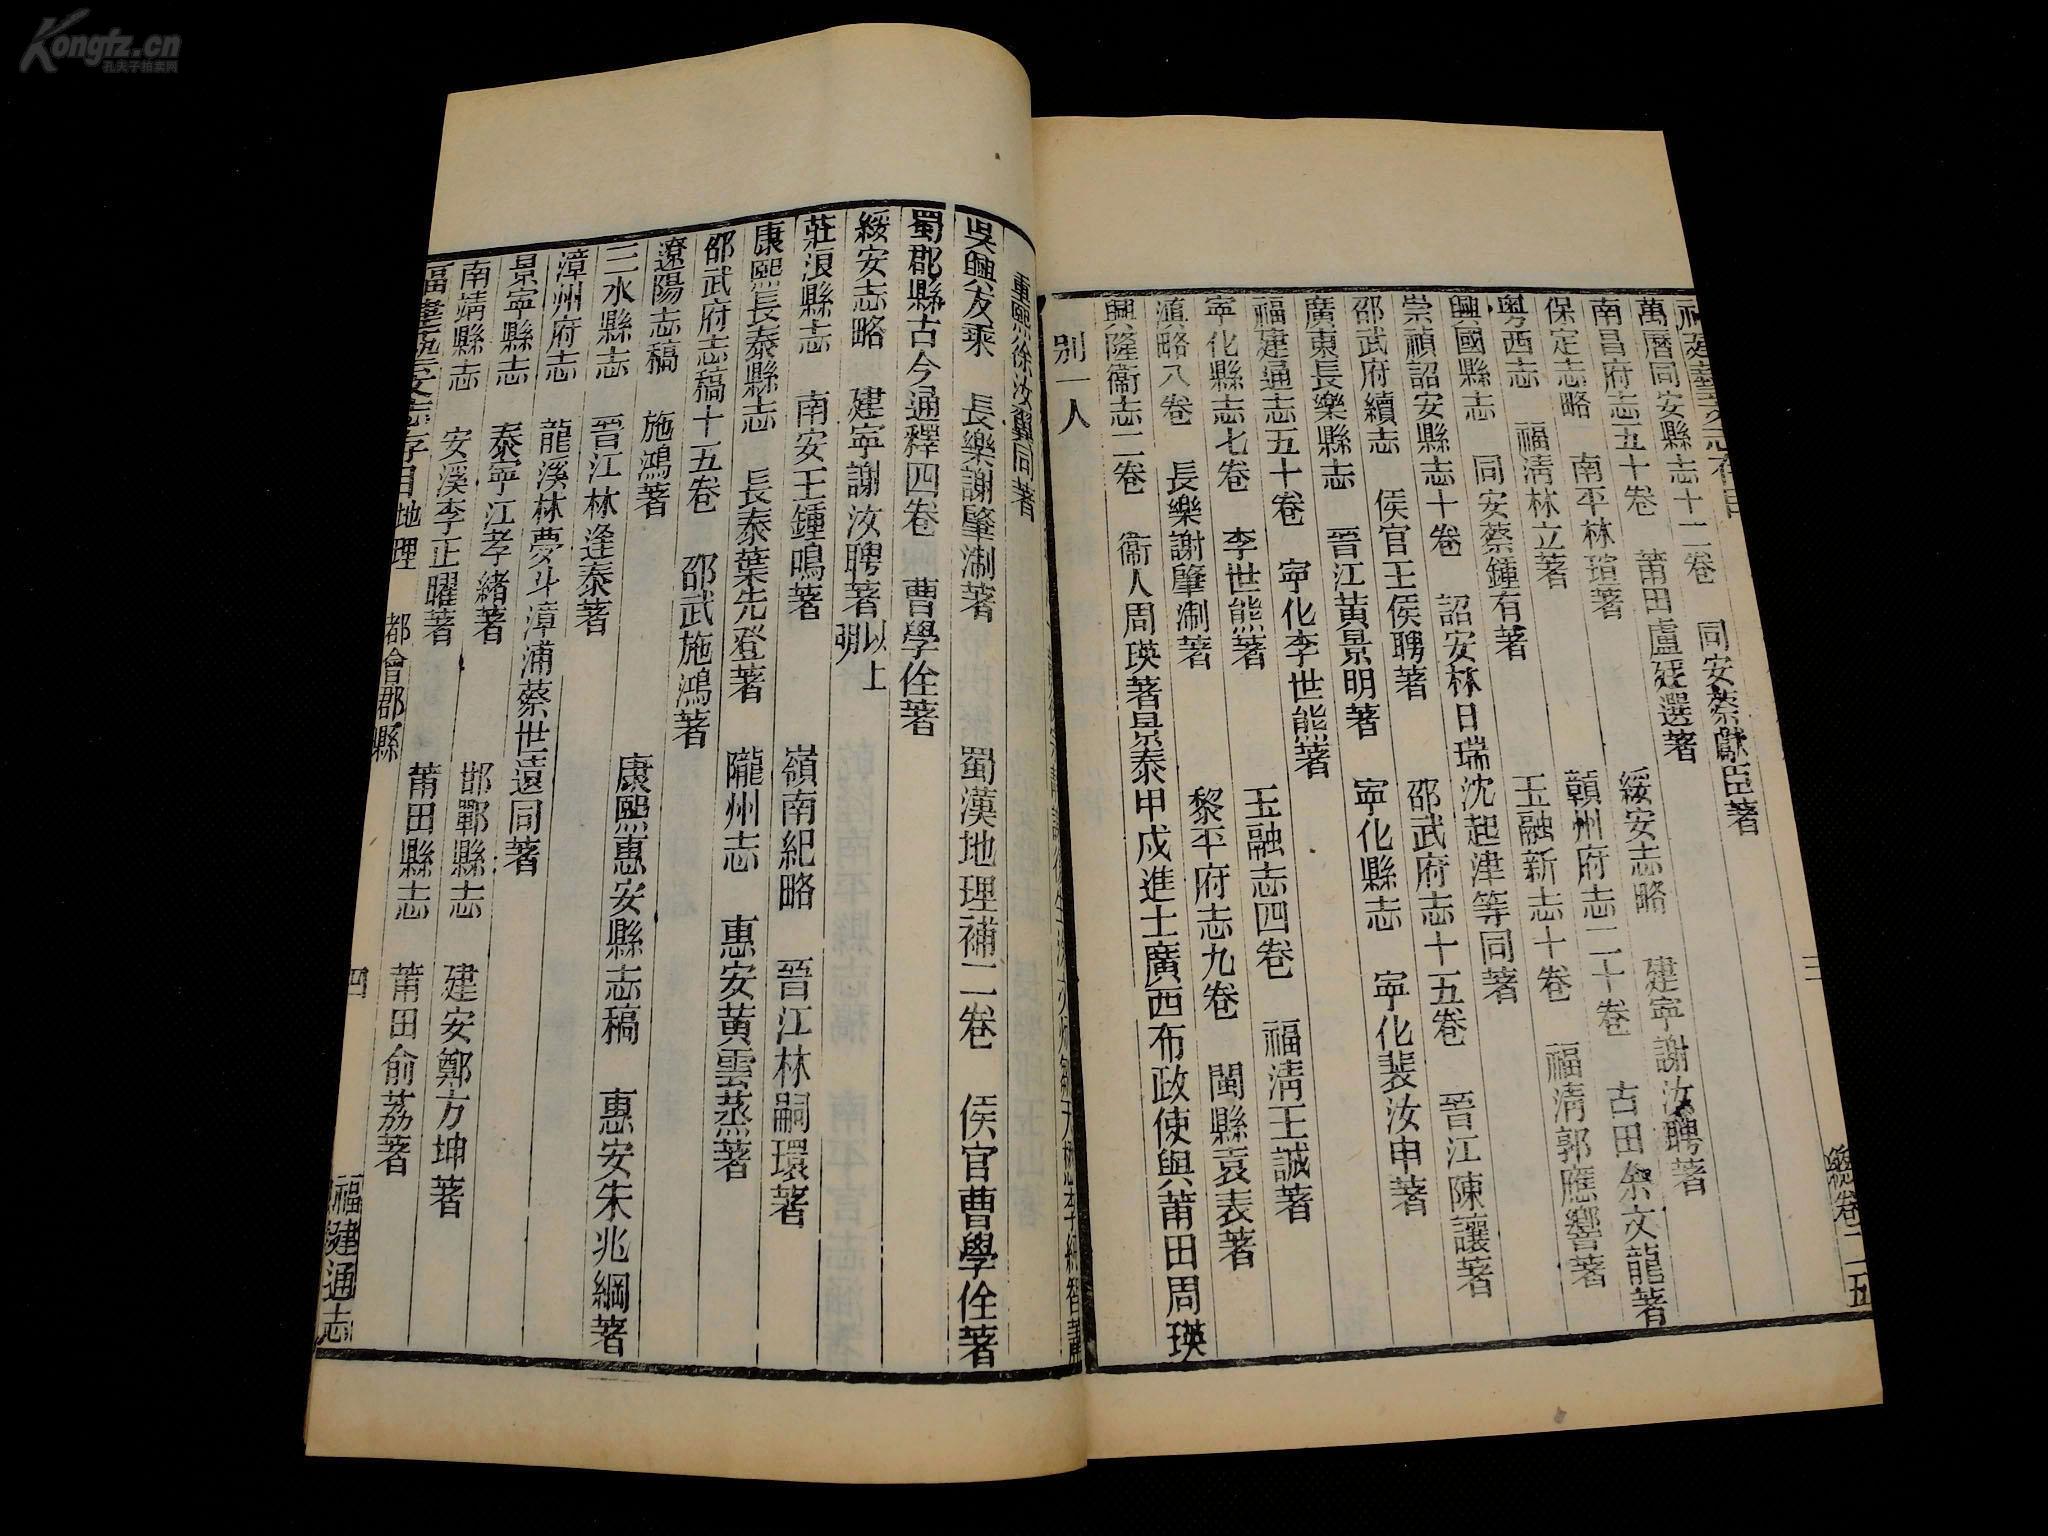 Kongfz.cn
孔夫子拍卖网
總卷二五
三
萬曆同安縣志十二卷 同安蔡獻臣著
南昌府志五十卷 莆田盧廷選著 綏安志略 建寧謝汝聘著
保定志略 南平林瑄著 贛州府志二十卷 古田余文龍著
粤西志 福淸林立著 玉融新志十卷 福淸郭應響著
興國縣志 同安蔡鍾有著
崇禎詔安縣志十卷 詔安林日瑞沈起津等同著 晉江陳讓著
邵武府續志 侯官王侯聘著 邵武府志十五卷
廣東長樂縣志 晉江黃景明著 寧化縣志 寧化裴汝申著
福建通志五十卷 寧化李世熊著
寧化縣志七卷 李世熊著 玉融志四卷 福淸王誠著
滇略八卷 長樂謝肇淛著 黎平府志九卷 閩縣袁表著
興隆衞志二卷 衞人周瑛著景泰甲戍進士廣西布政使與莆田周瑛
别一人
徐汝翼同著
吳興友乘 長樂謝肇淛著 蜀漢地理補二卷 侯官曹學佺著
蜀郡縣古今通釋四卷 曹學佺著
綏安志略 建寧謝汝聘著以上明
莊浪縣志 南安王鍾鳴著 嶺南紀略 晉江林嗣環著
康熙長泰縣志 長泰葉先登著 隴州志 惠安黃雲蒸著
邵武府志稿十五卷 邵武施鴻著
遼陽志稿 施鴻著 康熙惠安縣志稿 惠安朱兆綱著
三水縣志 晉江林逢泰著
漳州府志 龍溪林夢斗漳浦蔡世遠同著
景寧縣志 泰寧江孝緒著 邯鄲縣志 建安鄭方坤著
南靖縣志 安溪李正曜著 莆田縣志 莆田俞荔著
福建藝文志存目地理 都會郡縣 四 福建通志